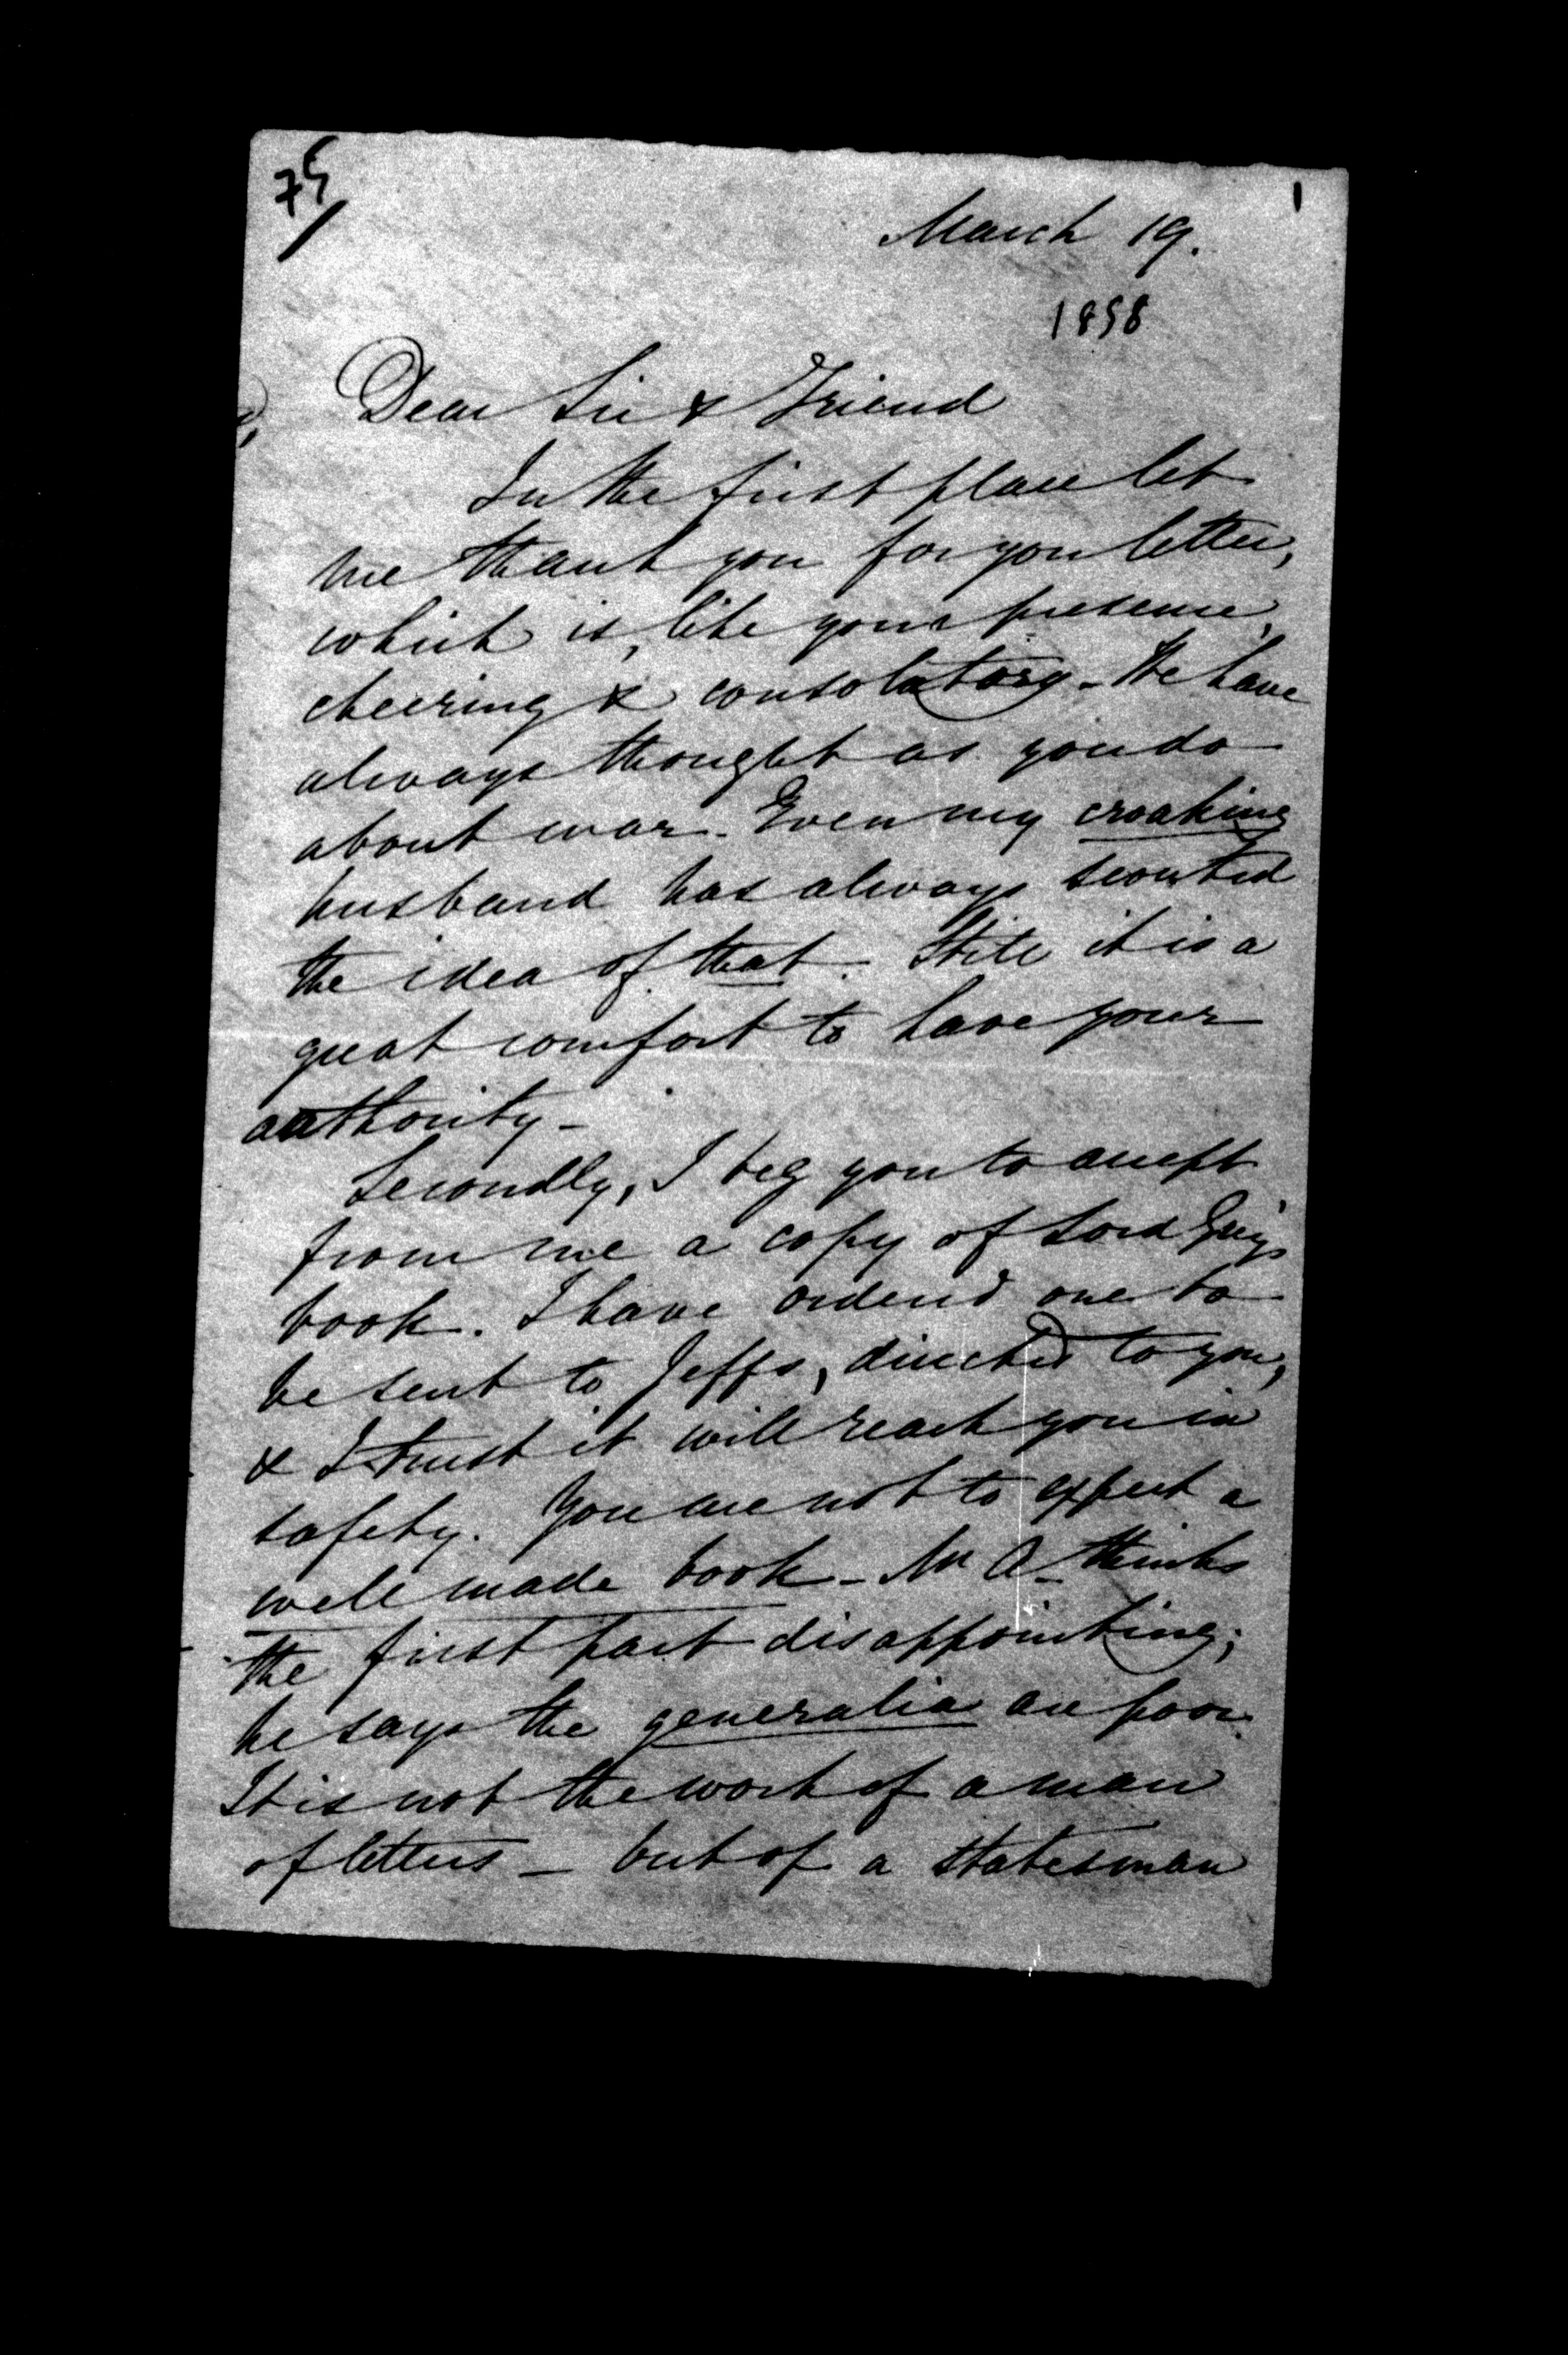 75
1
March 19.
1858
Dear Sir & Friend
In the first place let
me thank you for your letter,
which is, like your presence,
cheering & consolatory - We have
always thought as you do
about war. Even my croaking
husband has always scouted
the idea of that. Still it is a
great comfort to have your
authority -
Secondly, I beg you to accept
from me a copy of Lord Grey's
book. I have ordered one to
be sent to Jeffs, directed to you,
& I trust it will reach you in
safety. You are not to expect a
well made book - Mr A- thinks
the first part disappointing;
he says the generalia are poor.
It is not the work of a man
of letters - but of a statesman